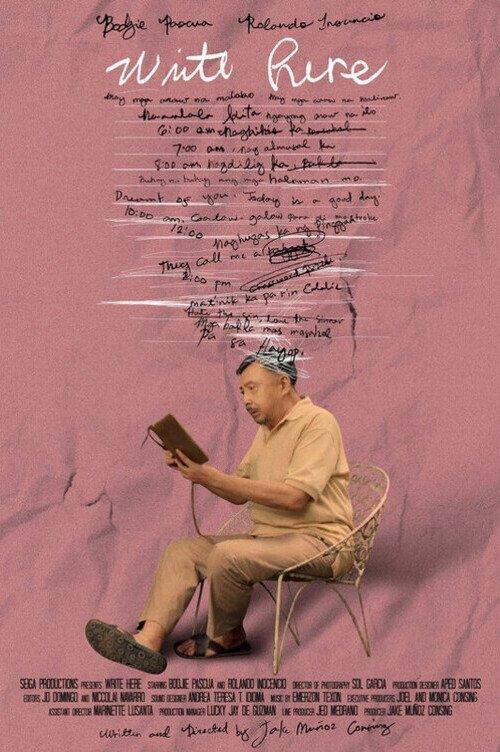 Bodjie Pascua Rolando Inocencio
Write Here
May mga araw na malabo May mga araw na malinaw.
Naaalala kita ngayong araw na ito
6:00 am Nagbihis ka
7:00 am, nag almusal ka
8:00 am nagdilig ka,
Buhay na buhay ang mga halaman mo.
Dreamt of you. Today is a good day.
10:00 am, Galaw-galaw para di mastroke
12:00 Naghugas ka ng pinggan
They call me a
2:00 pm
matinik ka parin Eddie
Hate the sin, love the sinner
Mga bakla mas masahol
pa sa Hayop.
SEIGA PRODUCTIONS PRESENTS WRITE HERE STARRING BODJIE PASCUA AND ROLANDO INOCENCIO DIRECTOR OF PHOTOGRAPHY SOL GARCIA PRODUCTION DESIGNER APED SANTOS
EDITORS JO DOMINGO AND NICCOLAI NAVARRO SOUND DESIGNER ANDREA TERESA T. IDIOMA MUSIC BY EMERZON TEXON EXECUTIVE PRODUCERS JOEL AND MONICA CONSING
ASSISTANT DIRECTOR MARINETTE LUSANTA PRODUCTION MANAGER LUCKY JAY DE GUZMAN LINE PRODUCER JED MEDRANO PRODUCER JAKE MUÑOZ CONSING
Written and Directed by Jake Muñoz Consing